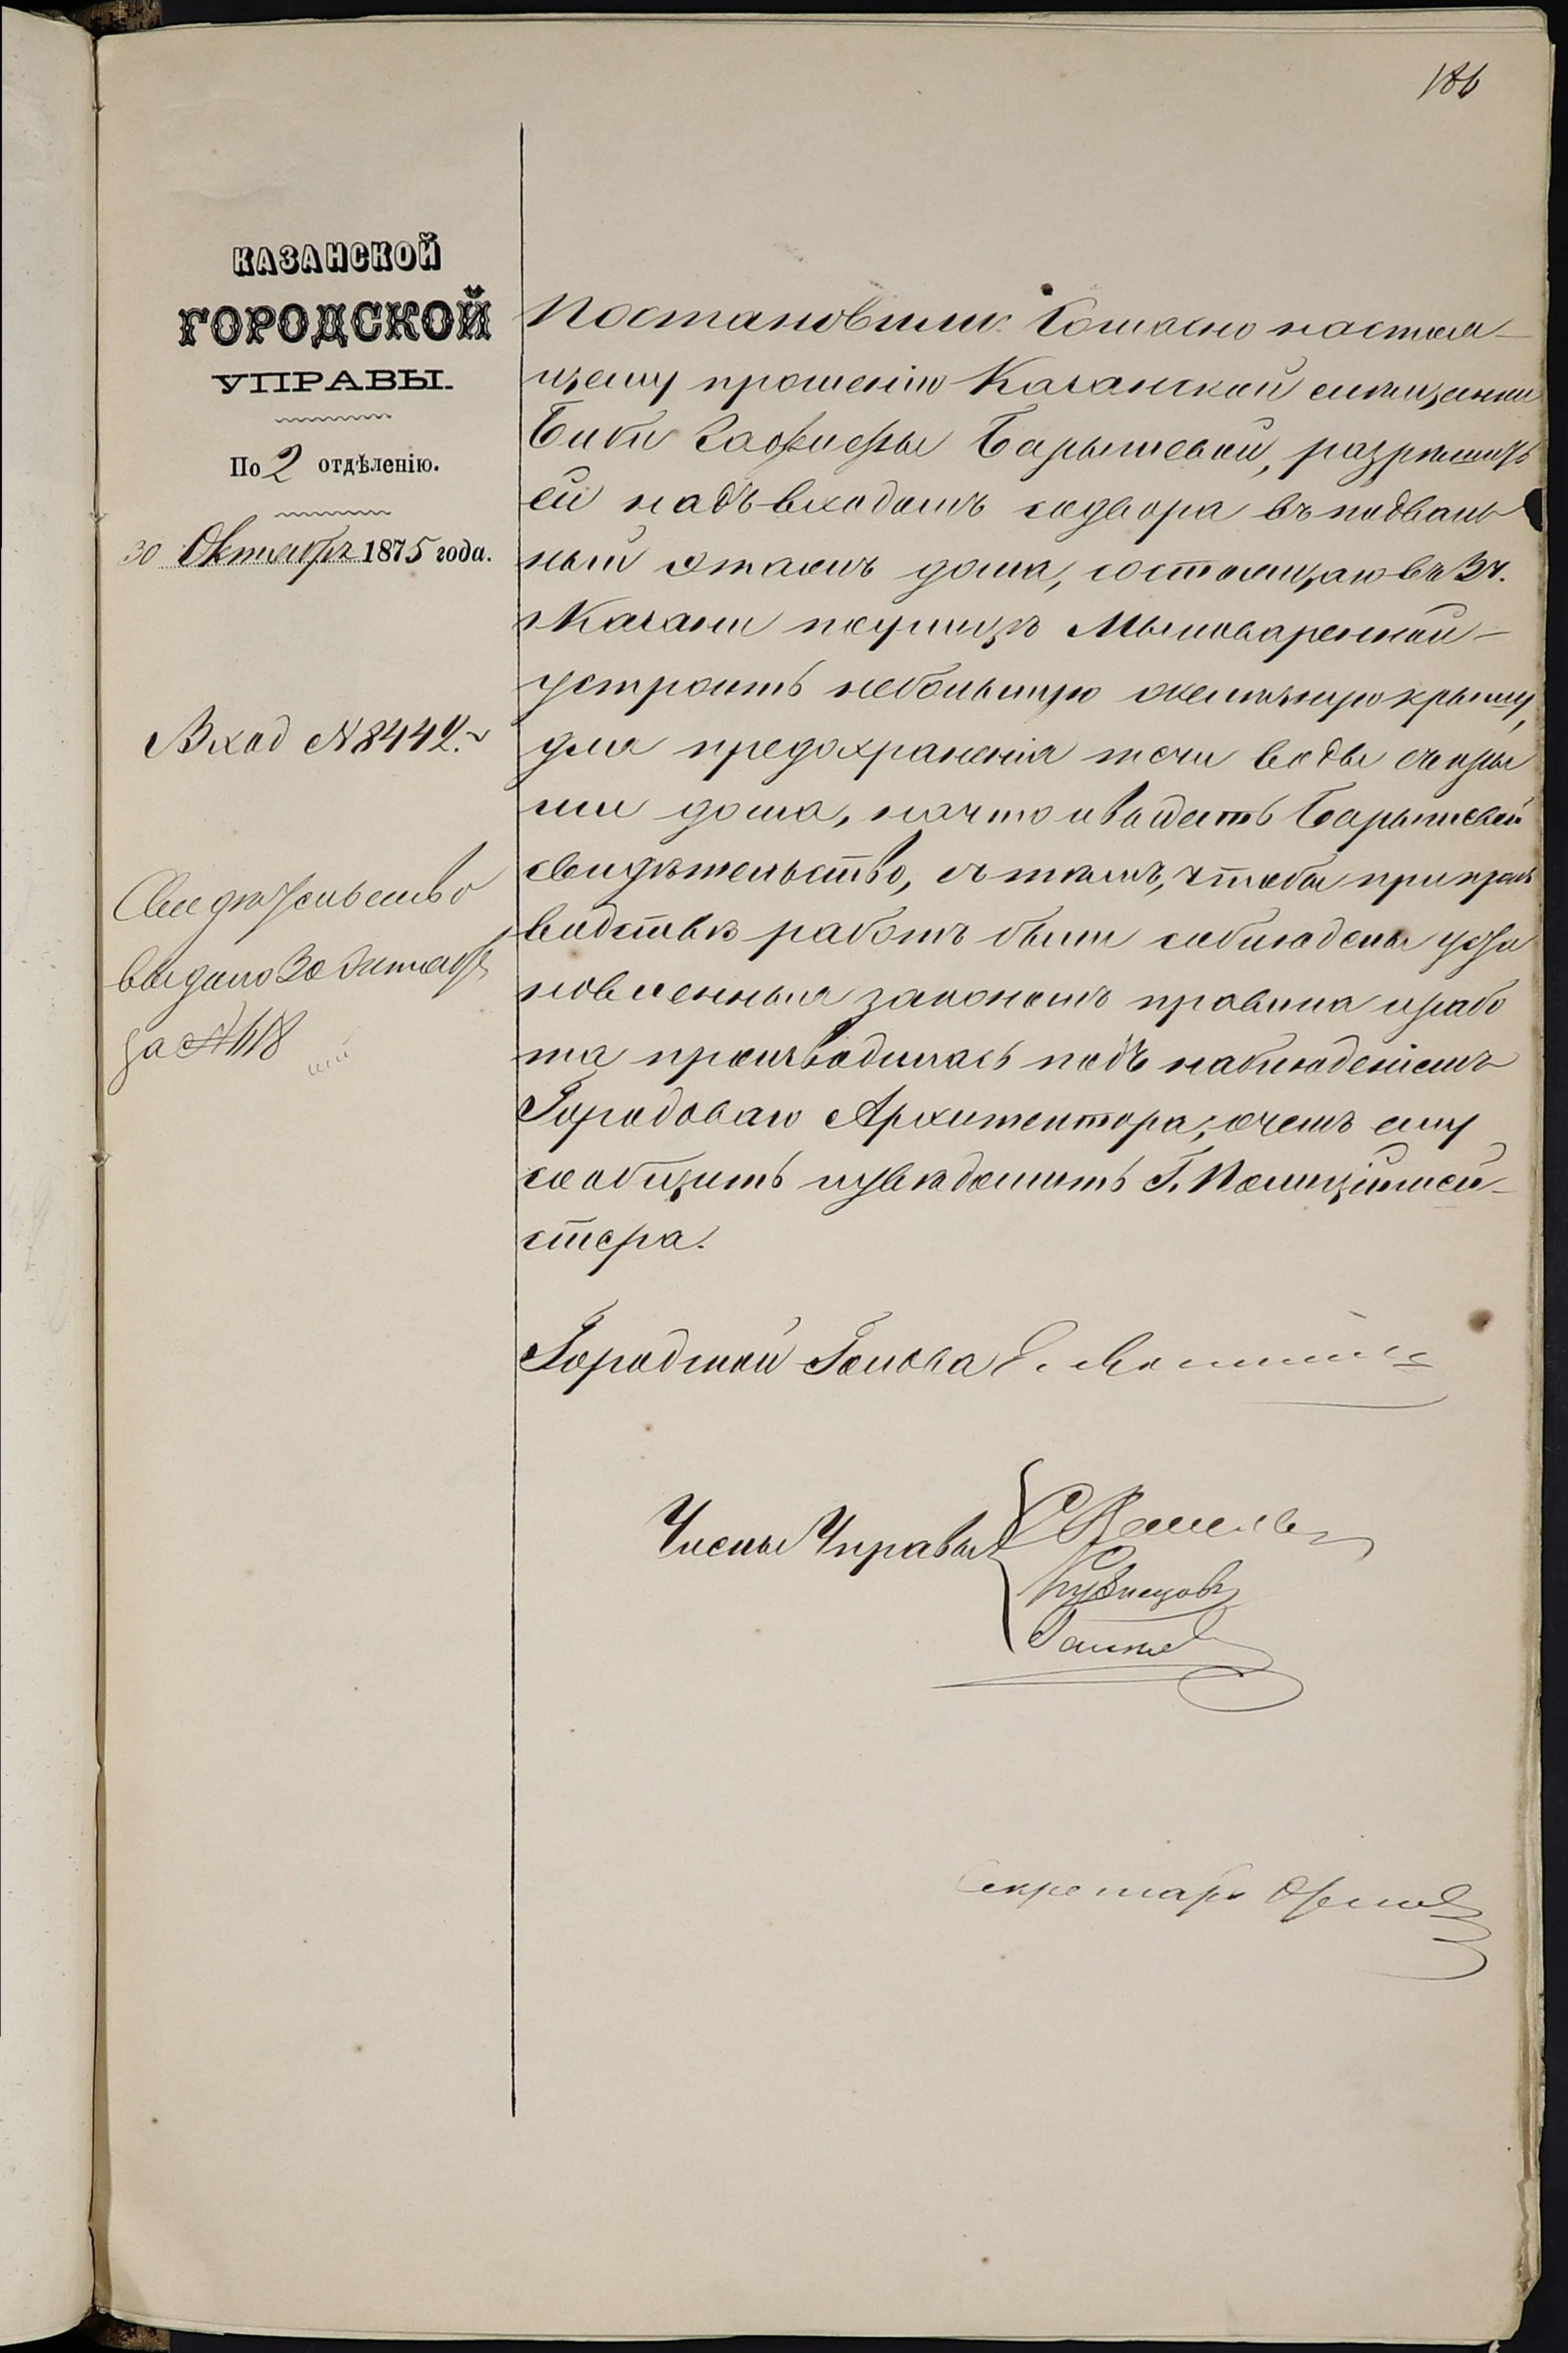 186
КАЗАНСКОЙ
ГОРОДСКОЙ
УПРАВЫ.
По 2 отдѣленію.
30 Октября 1875 года.
Вход № 8442.
Свидѣтельство
выдано 30 Октября
за № 118
Постановили: Согласно настоя-
щему прошенію Казанской мѣщанки
Биби Барышевой, разрѣшить
ей надъ входомъ со двора въ подваль
ный этажъ дома, состоящаго въ 3 ч.
г. Казани по улицѣ Мыловаренной –
устроить небольшую желѣзную крышу,
для предохраненія течи воды съ кры
ши дома, на что и выдать Барышевой
свидѣтельство, съ тѣмъ, чтобы при произ
водствѣ работъ были соблюдены уста
новленныя закономъ правила и рабо
та производилась подъ наблюденіемъ
Городоваго Архитектора; о чемъ ему
сообщить и увѣдомить Г. Полиціймей-
стера.
Городской Голова
Члены Управы
Кузнецовъ
Секретарь